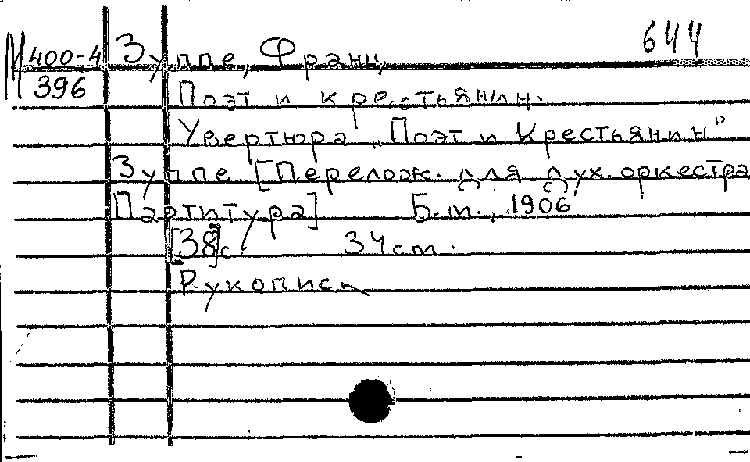 644
М 400-4 Зуппе, Франц
396 Поэт и крестьянин.
Увертюра „Поэт и Крестьянин"
Зуппе [Перелож. для дух. оркестра
Партитура] Б.м., 1906
[38]с. 34 cm.
Рукопись